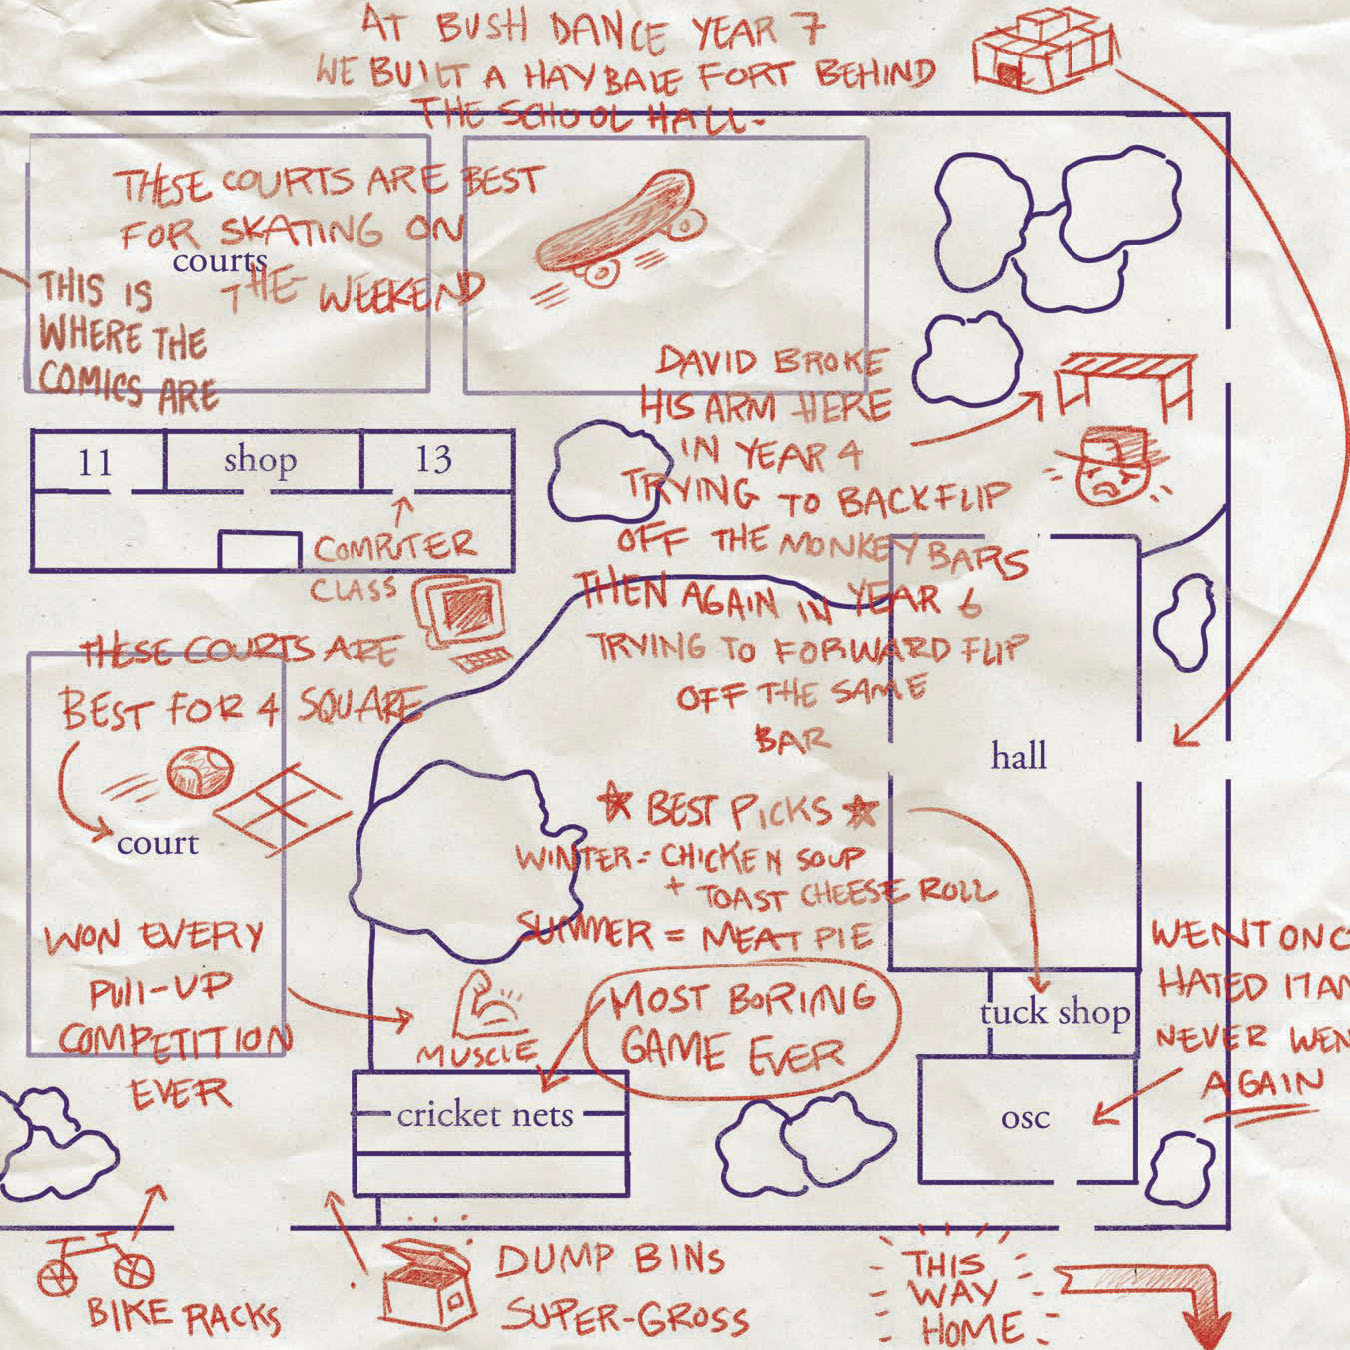 AT BUSH DANCE YEAR 7
WE BUILT A HAYBALE FORT BEHIND
THE SCHOOL HALL-
THESE COURTS ARE BEST
FOR SKATING ON
THE WEEKEND
courts
THIS IS
WHERE THE
COMICS ARE
DAVID BROKE
HIS ARM HERE
IN YEAR 4
TRYING TO BACKFLIP
OFF THE MONKEY BARS
THEN AGAIN IN YEAR 6
TRYING TO FORWARD FLIP
OFF THE SAME
BAR
11
shop
13
COMPUTER
CLASS
THESE COURTS ARE
BEST FOR 4 SQUARE
court
hall
BEST PICKS
WINTER = CHICKEN SOUP
+ TOAST CHEESE ROLL
SUMMER = MEAT PIE
WON EVERY
PULL-UP
COMPETITION
EVER
MUSCLE
MOST BORING
GAME EVER
tuck shop
WENT ONC
HATED IT AN
NEVER WEN
AGAIN
cricket nets
osc
BIKE RACKS
DUMP BINS
SUPER-GROSS
THIS
WAY
HOME